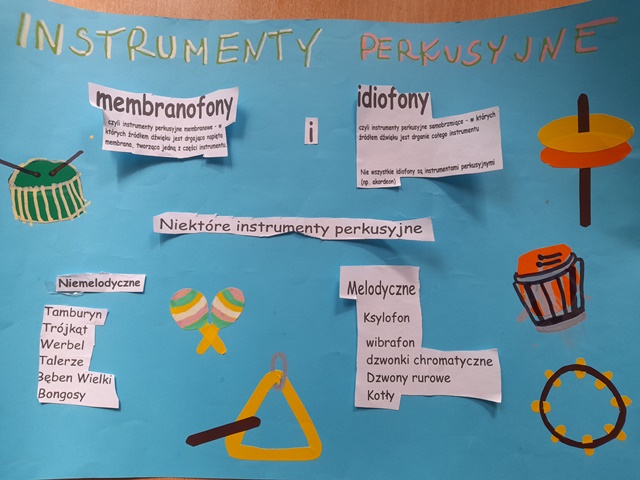 INSTRUMENTY PERKUSYJNE
membranofony
czyli instrumenty perkusyjne membranowe - w
których źródłem dźwięku jest drgająca napięta
membrana, tworząca jedną z części instrumentu.
i
idiofony
czyli instrumenty perkusyjne samobrzmiące - w których
źródłem dźwięku jest drganie całego instrumentu
Nie wszystkie idiofony są instrumentami perkusyjnymi
(np. akordeon)
Niektóre instrumenty perkusyjne
Niemelodyczne
Tamburyn
Trójkąt
Werbel
Talerze
Bęben Wielki
Bongosy
Melodyczne
Ksylofon
wibrafon
dzwonki chromatyczne
Dzwony rurowe
Kotły